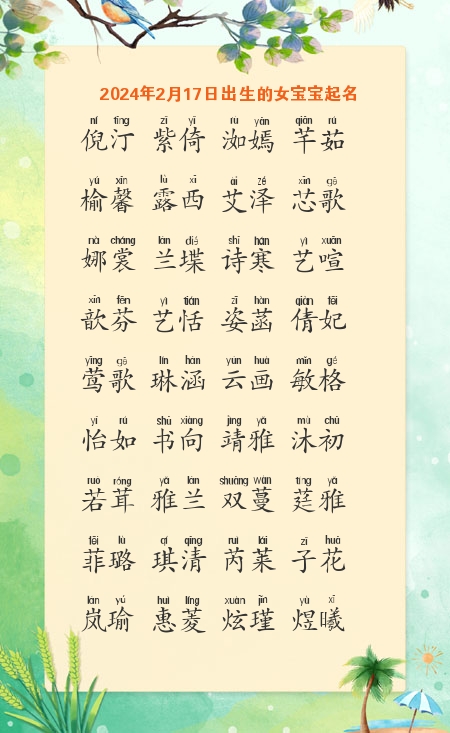 2024年2月17日出生的女宝宝起名
ní tīng zǐ yǐ rù yān qiān rú
倪汀 紫倚 洳嫣 芊茹
yú xīn lù xī ài zé xīn gē
榆馨 露西 艾泽 芯歌
nà cháng lán dié shī hán yì xuān
娜裳 兰堞 诗寒 艺喧
xīn fēn yì tián zī hàn qiàn fēi
歆芬 艺恬 姿菡 倩妃
yīng gē lín hán yún huà mǐn gé
莺歌 琳涵 云画 敏格
yí rú shū xiàng jìng yǎ mù chū
怡如 书向 靖雅 沐初
ruò róng yǎ lán shuāng wàn tíng yǎ
若茸 雅兰 双蔓 莛雅
fēi lù qí qīng ruì lái zǐ huā
菲璐 琪清 芮莱 子花
lán yú huì líng xuàn jǐn yù xī
岚瑜 惠菱 炫瑾 煜曦